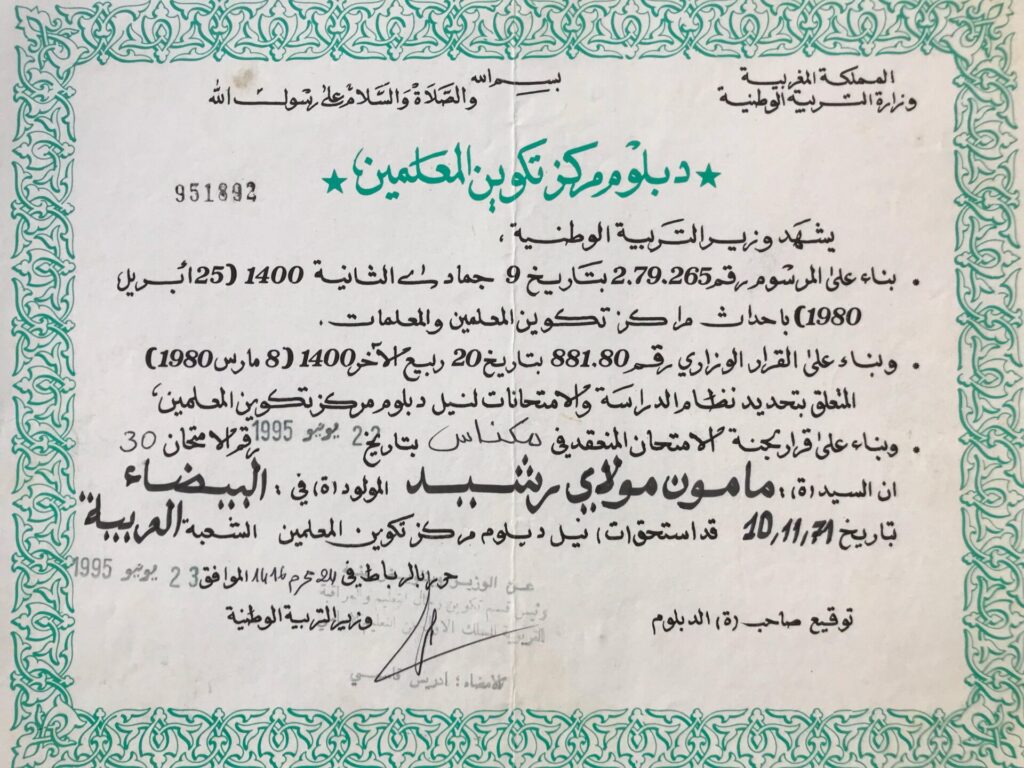 المملكة المغربية
وزارة التربية الوطنية
بسم الله
والصلاة والسلام على رسول الله
★ دبلوم مركز تكوين المعلمين ★
951892
يشهد وزير التربية الوطنية ،
• بناء على المرسوم رقم 2.79.265 بتاريخ 9 جمادى الثانية 1400 (25 أبريل
1980) باحداث مراكز تكوين المعلمين والمعلمات .
• وبناء على القرار الوزاري رقم 881.80 بتاريخ 20 ربيع الآخر 1400 (8 مارس 1980)
المتعلق بتحديد نظام الدراسة والامتحانات لنيل دبلوم مركز تكوين المعلمين،
• وبناء على قرار لجنة الامتحان المنعقد في مكناس بتاريخ 22 يونيو 1995 رقم الامتحان 30
ان السيد (ة) : مامون مولاي رشيد المولود (ة) في : البيضاء
بتاريخ 10,11,71 قد استحق (ت) نيل دبلوم مركز تكوين المعلمين الشعبة العربية
حرر بالرباط في 24 محرم 1416 الموافق 23 يونيو 1995
عن الوزير
رئيس قسم تكوين
وزير التربية الوطنية
توقيع صاحب (ة) الدبلوم
الامضاء : ادريس